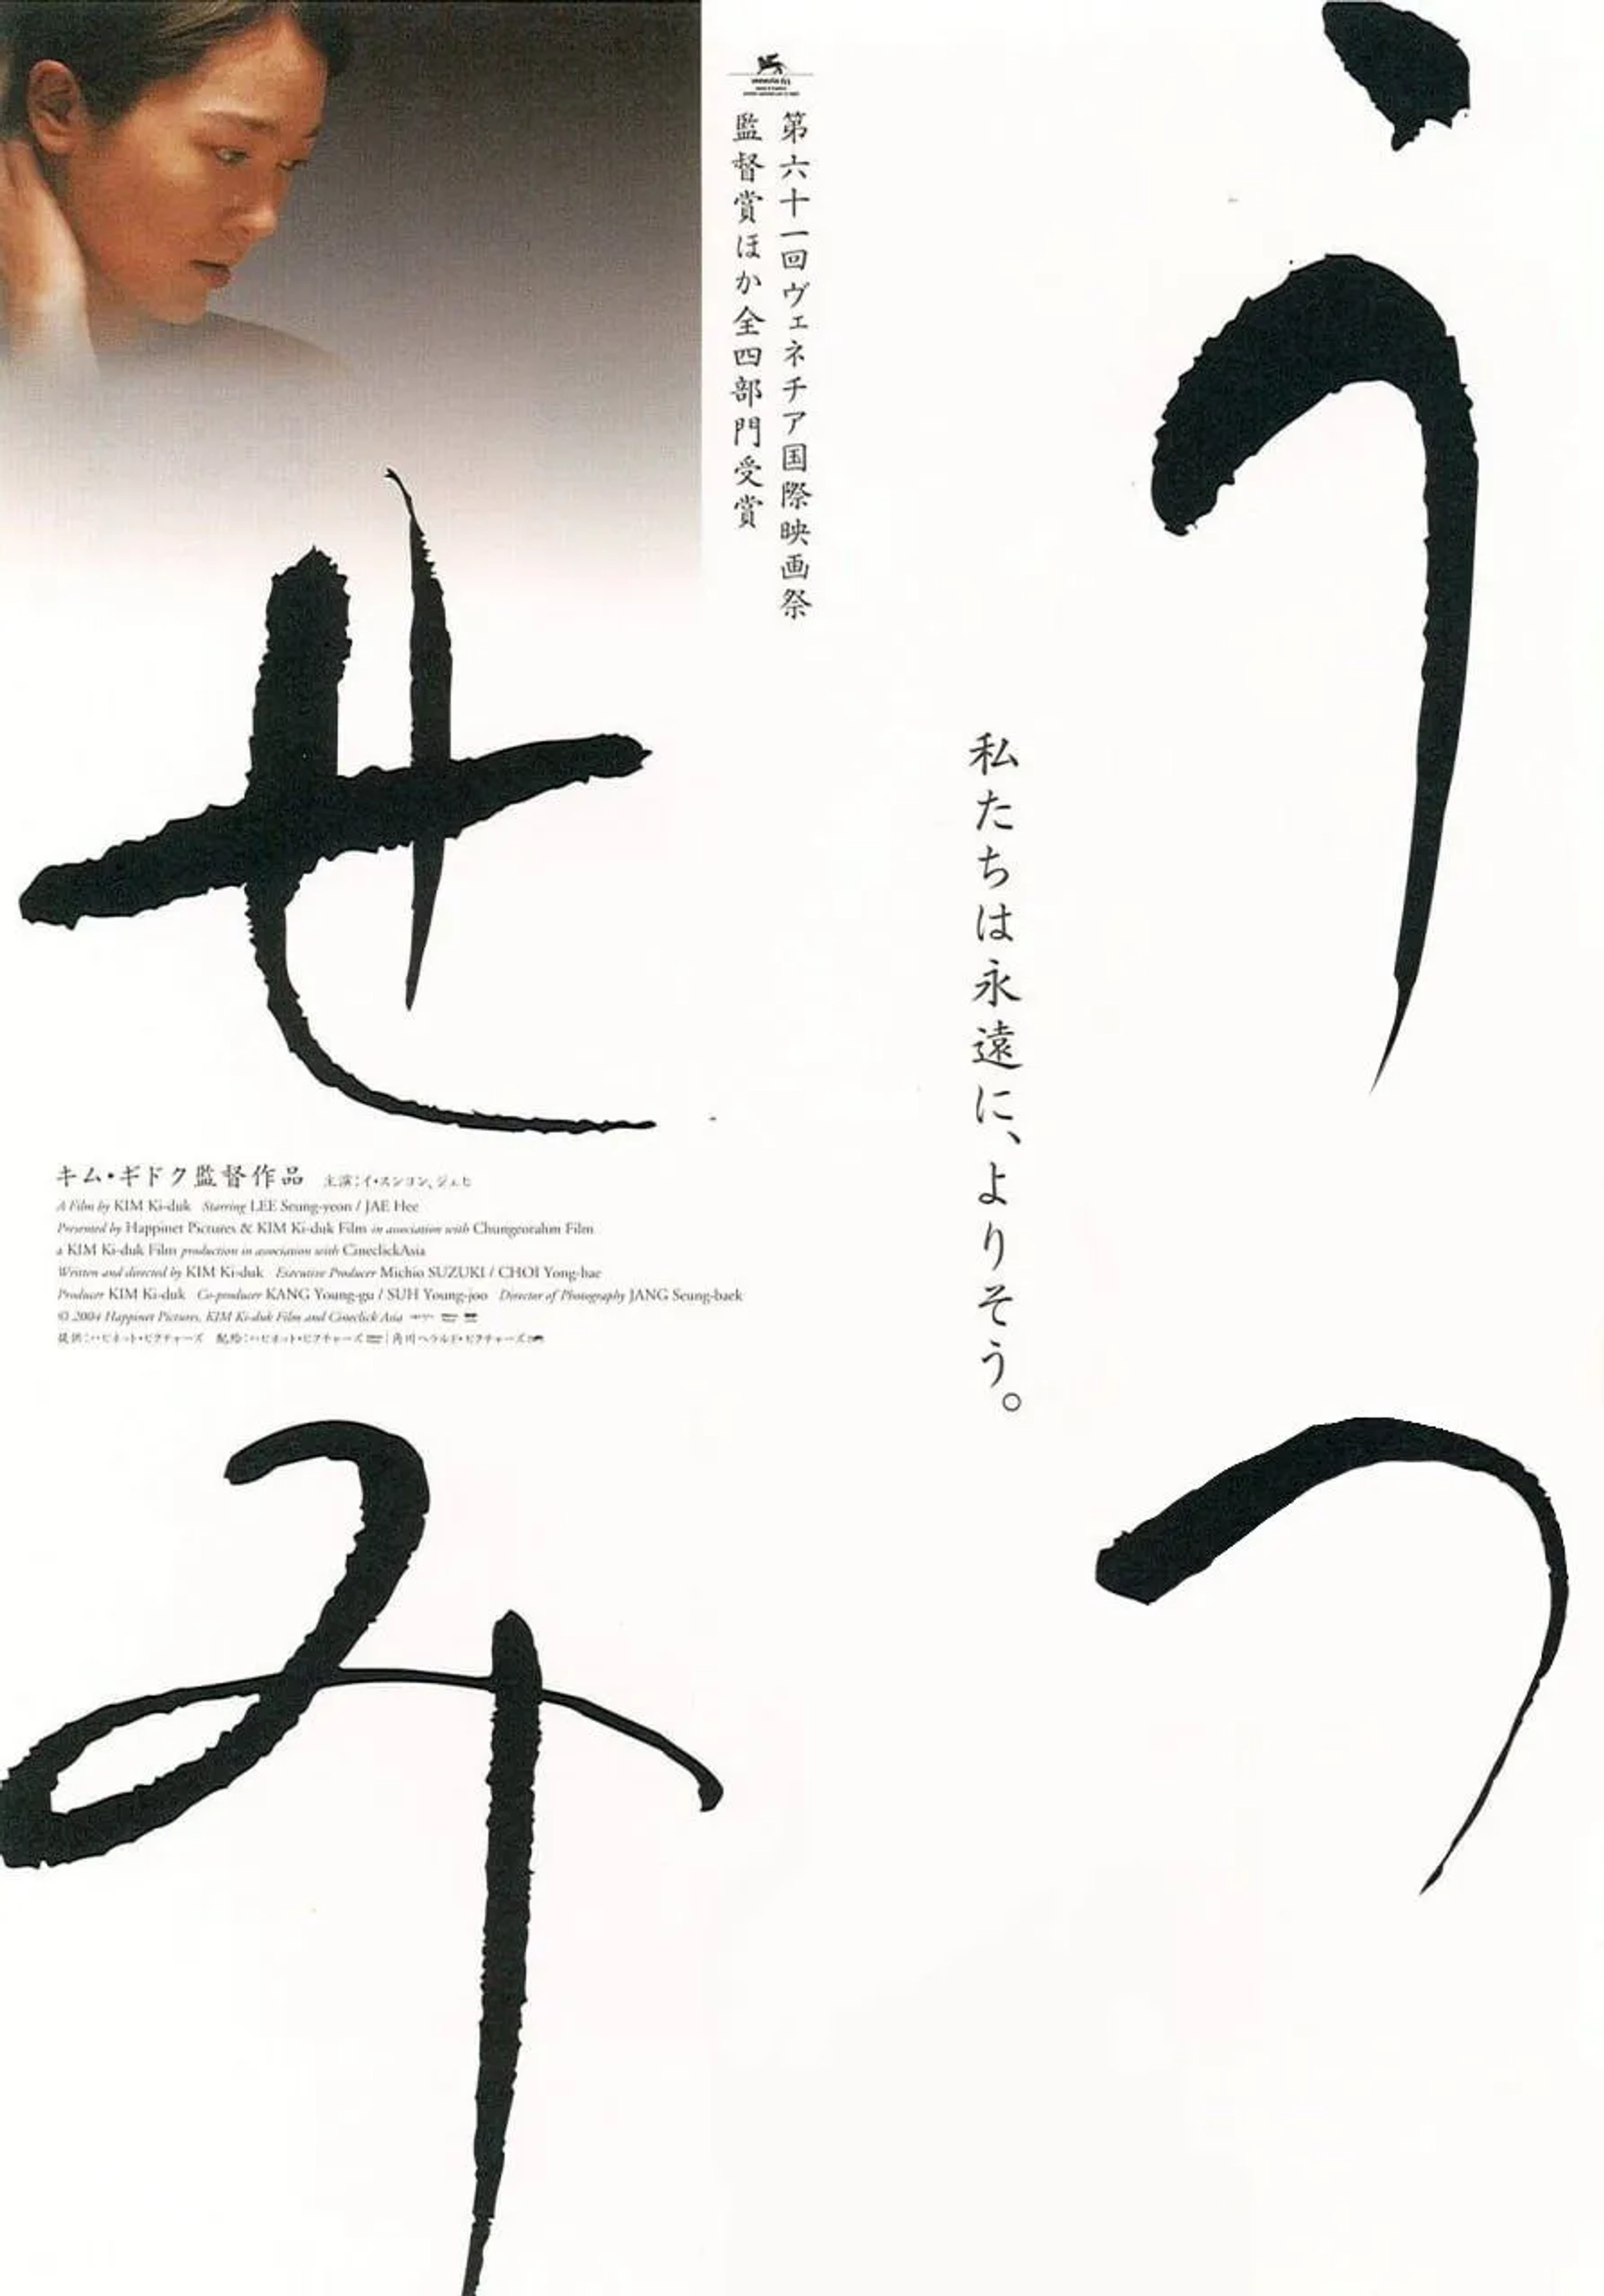 うつ
せみ
第六十一回ヴェネチア国際映画祭
監督賞ほか全四部門受賞
私たちは永遠に、よりそう。
キム・ギドク監督作品 主演:イ・スンヨン、ジェヒ
A Film by KIM Ki-duk Starring LEE Seung-yeon / JAE Hee
Presented by Happinet Pictures & KIM Ki-duk Film in association with Chungeorahm Film
a KIM Ki-duk Film production in association with CineclickAsia
Written and directed by KIM Ki-duk Executive Producer Michio SUZUKI / CHOI Yong-bae
Producer KIM Ki-duk Co-producer KANG Young-gu / SUH Young-joo Director of Photography JANG Seung-baek
© 2004 Happinet Pictures, KIM Ki-duk Film and Cineclick Asia
提供:ハピネット・ピクチャーズ 配給:ハピネット・ピクチャーズ | 角川ヘラルド・ピクチャーズ